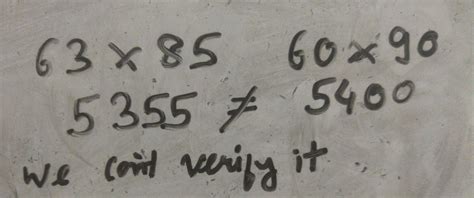 63 × 85 60 × 90
5355 ≠ 5400
we can't verify it